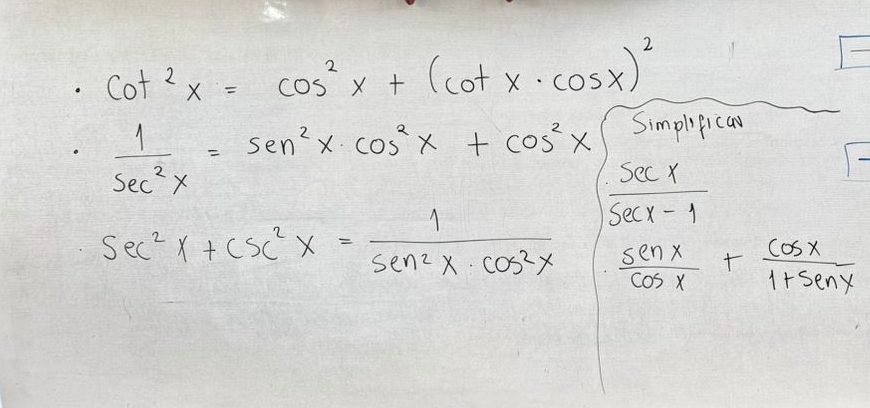 · Cot² x = cos² x + (cot x · cosx)²
· 1/Sec² x = sen² x · cos² x + cos² x
· Sec² x + csc² x = 1/(sen² x · cos² x)
Simplificar
· Sec x/(Secx - 1)
· sen x/cos x + cos x/(1 + Senx)